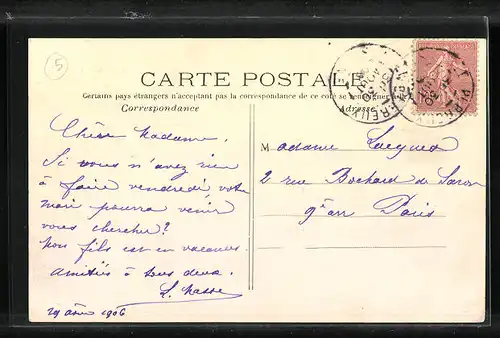 5
CARTE POSTALE
Certains pays étrangers n'acceptant pas la correspondance de ce côté se renseigner
Correspondance
Adresse
Chère Madame.
Si vous n'avez rien
à faire vendredi votre
mari pourra venir
vous chercher?
mon fils est en vacances
amitiés à tous deux.
L. Masse
29 août 1906
M adame Lacqued
2 rue Bochard de Saron
9e arr Paris